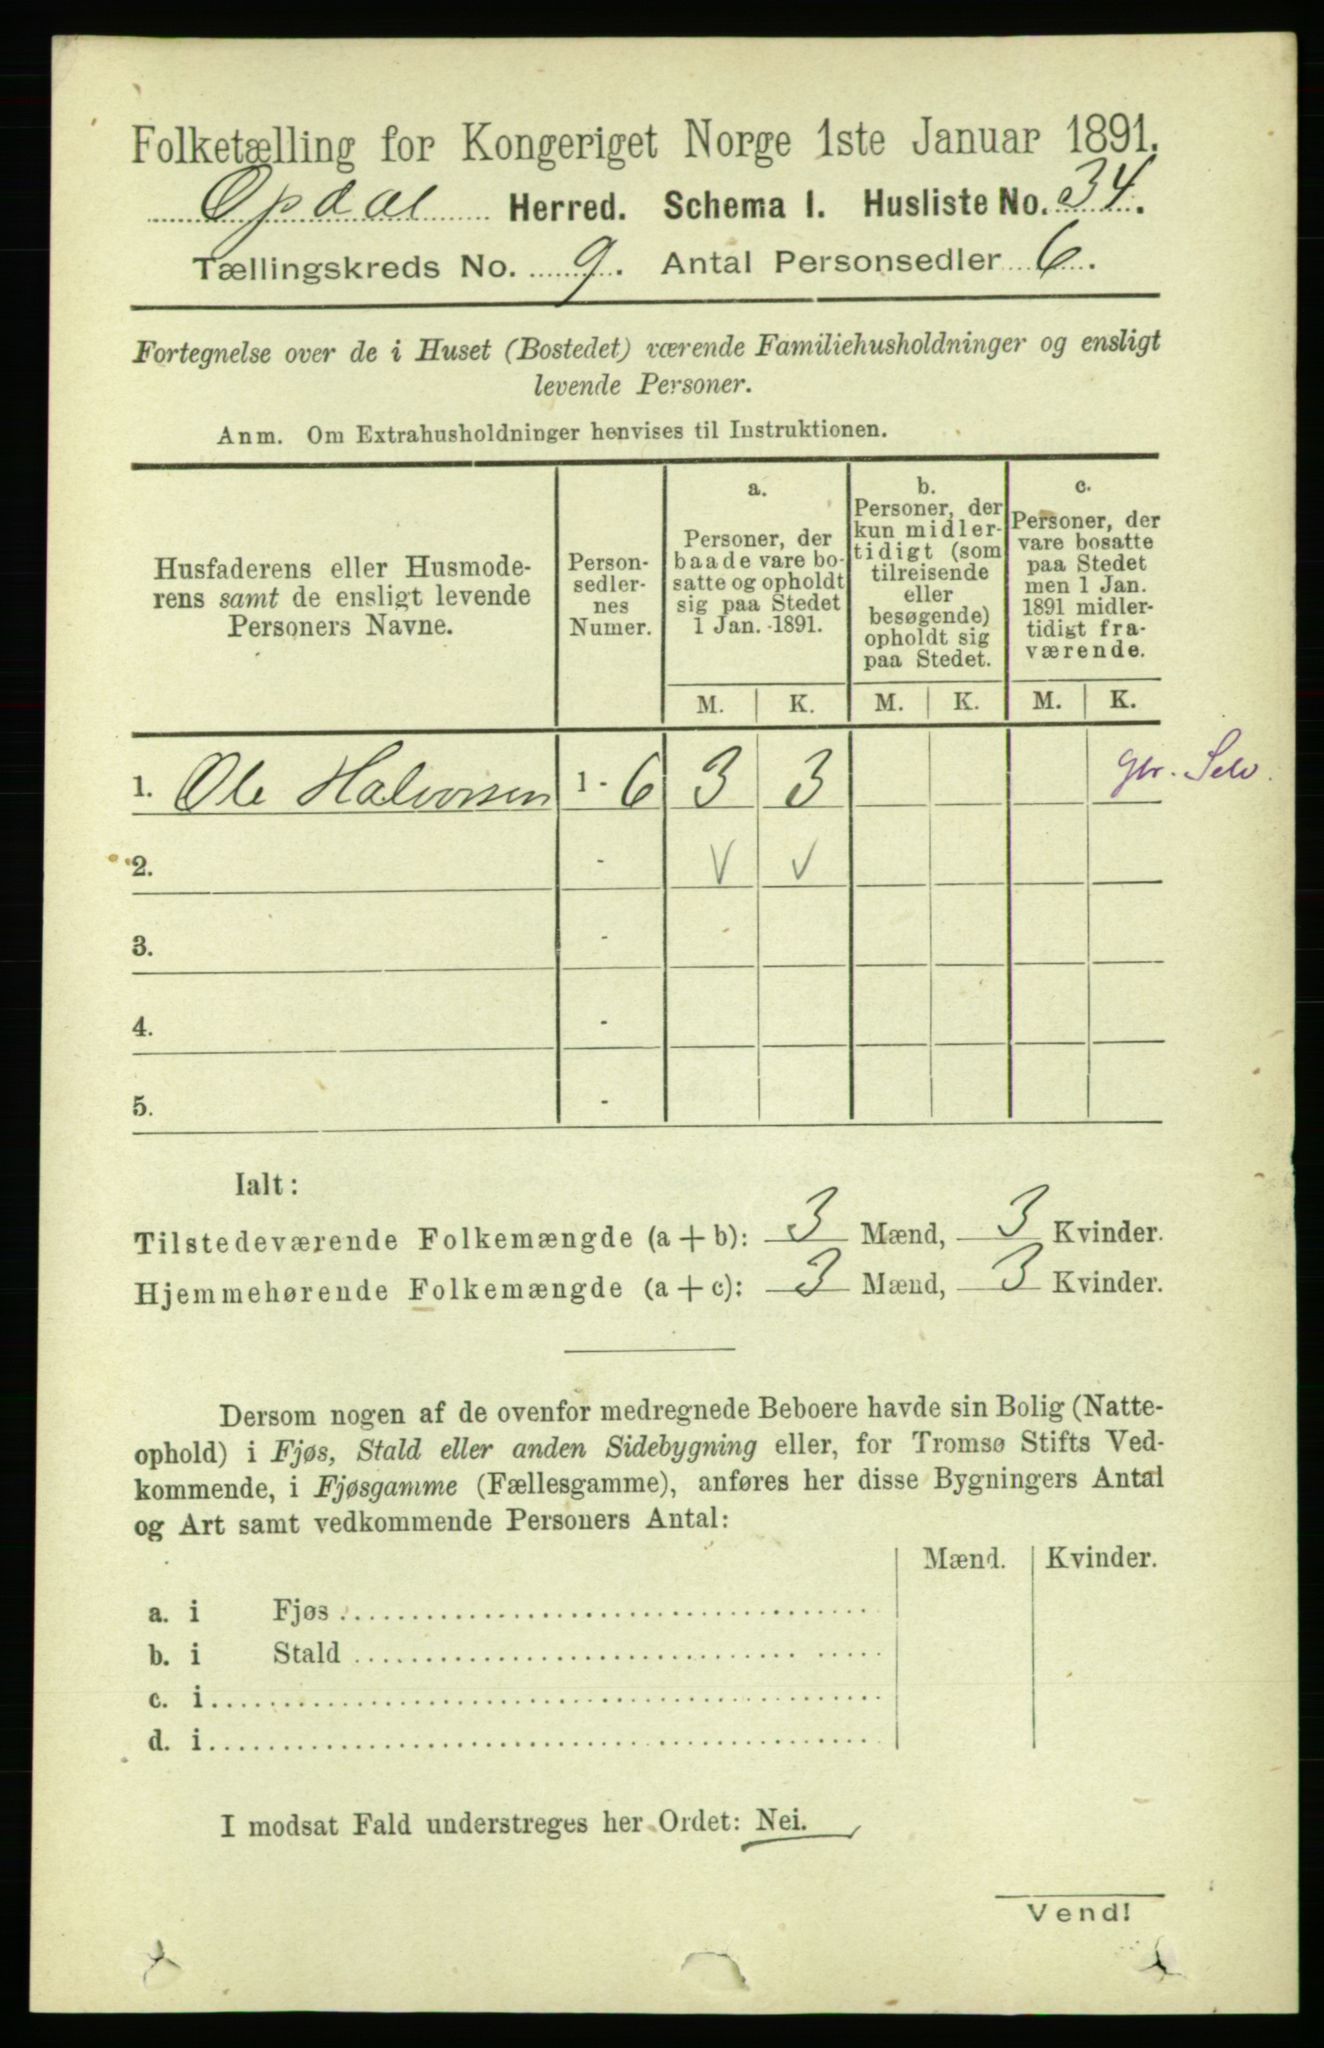 Folketælling for Kongeriget Norge 1ste Januar 1891.
Opdal Herred. Schema I. Husliste No. 34.
Tællingskreds No. 9. Antal Personsedler 6.
Fortegnelse over de i Huset (Bostedet) værende Familiehusholdninger og ensligt
levende Personer.
Anm. Om Extrahusholdninger henvises til Instruktionen.
Husfaderens eller Husmode-
rens samt de ensligt levende
Personers Navne.
Person-
sedler-
nes
Numer.
a.
Personer, der
baade vare bo-
satte og opholdt
sig paa Stedet
1 Jan. 1891.
b.
Personer, der
kun midler-
tidigt (som
tilreisende
eller
besøgende)
opholdt sig
paa Stedet.
c.
Personer, der
vare bosatte
paa Stedet
men 1 Jan.
1891 midler-
tidigt fra-
værende.
M. K. M. K. M. K.
1. Ole Halvorsen 1 - 6 3 3 gbr. Selv.
2. - V V
3. -
4. -
5. -
Ialt:
Tilstedeværende Folkemængde (a + b): 3 Mænd, 3 Kvinder.
Hjemmehørende Folkemængde (a + c): 3 Mænd, 3 Kvinder.
Dersom nogen af de ovenfor medregnede Beboere havde sin Bolig (Natte-
ophold) i Fjøs, Stald eller anden Sidebygning eller, for Tromsø Stifts Ved-
kommende, i Fjøsgamme (Fællesgamme), anføres her disse Bygningers Antal
og Art samt vedkommende Personers Antal:
Mænd. Kvinder.
a. i Fjøs
b. i Stald
c. i
d. i
I modsat Fald understreges her Ordet: Nei.
Vend!